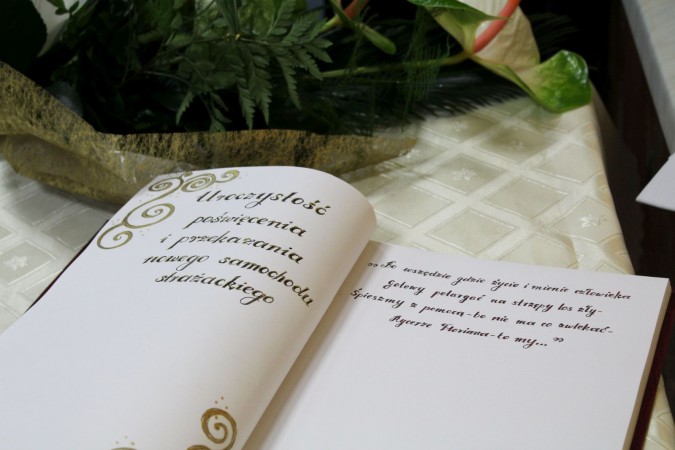 Uroczystość
poświęcenia
i przekazania
nowego samochodu
strażackiego
„To wszędzie gdzie życie i mienie człowieka
Gotowy potargać na strzępy los zły-
Śpieszmy z pomocą-bo nie ma co zwlekać-
Rycerze Floriana-to my..."